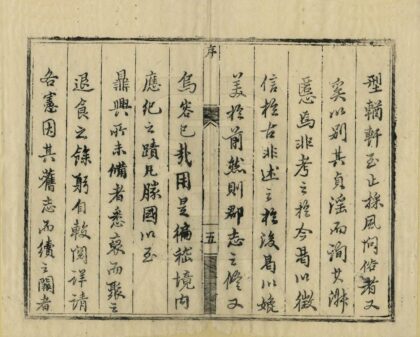 型輶軒至止採風問俗者又
奚以別其貞淫而洵其淑
慝焉非考之於今曷以徵
信於古非述之於後曷以媲
美於前然則郡志之修又
序
五
烏容已哉用是徧嵇境内
應化之蹟凡勝國以至
鼎興所未備者悉裒而聚之
退食之餘躬自較閱詳請
各憲因其舊志而續之闕者